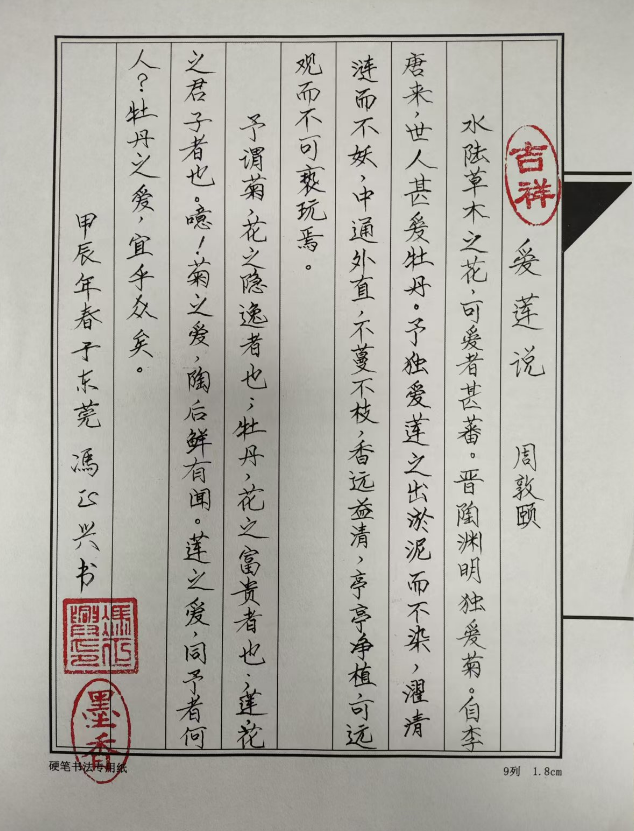 吉祥
爱莲说 周敦颐
水陆草木之花，可爱者甚蕃。晋陶渊明独爱菊。自李
唐来，世人甚爱牡丹。予独爱莲之出淤泥而不染，濯清
涟而不妖，中通外直，不蔓不枝，香远益清，亭亭净植，可远
观而不可亵玩焉。
予谓菊，花之隐逸者也；牡丹，花之富贵者也；莲，花
之君子者也。噫！菊之爱，陶后鲜有闻。莲之爱，同予者何
人？牡丹之爱，宜乎众矣。
甲辰年春于东莞 冯正兴书
墨香
硬笔书法专用纸
9列 1.8cm